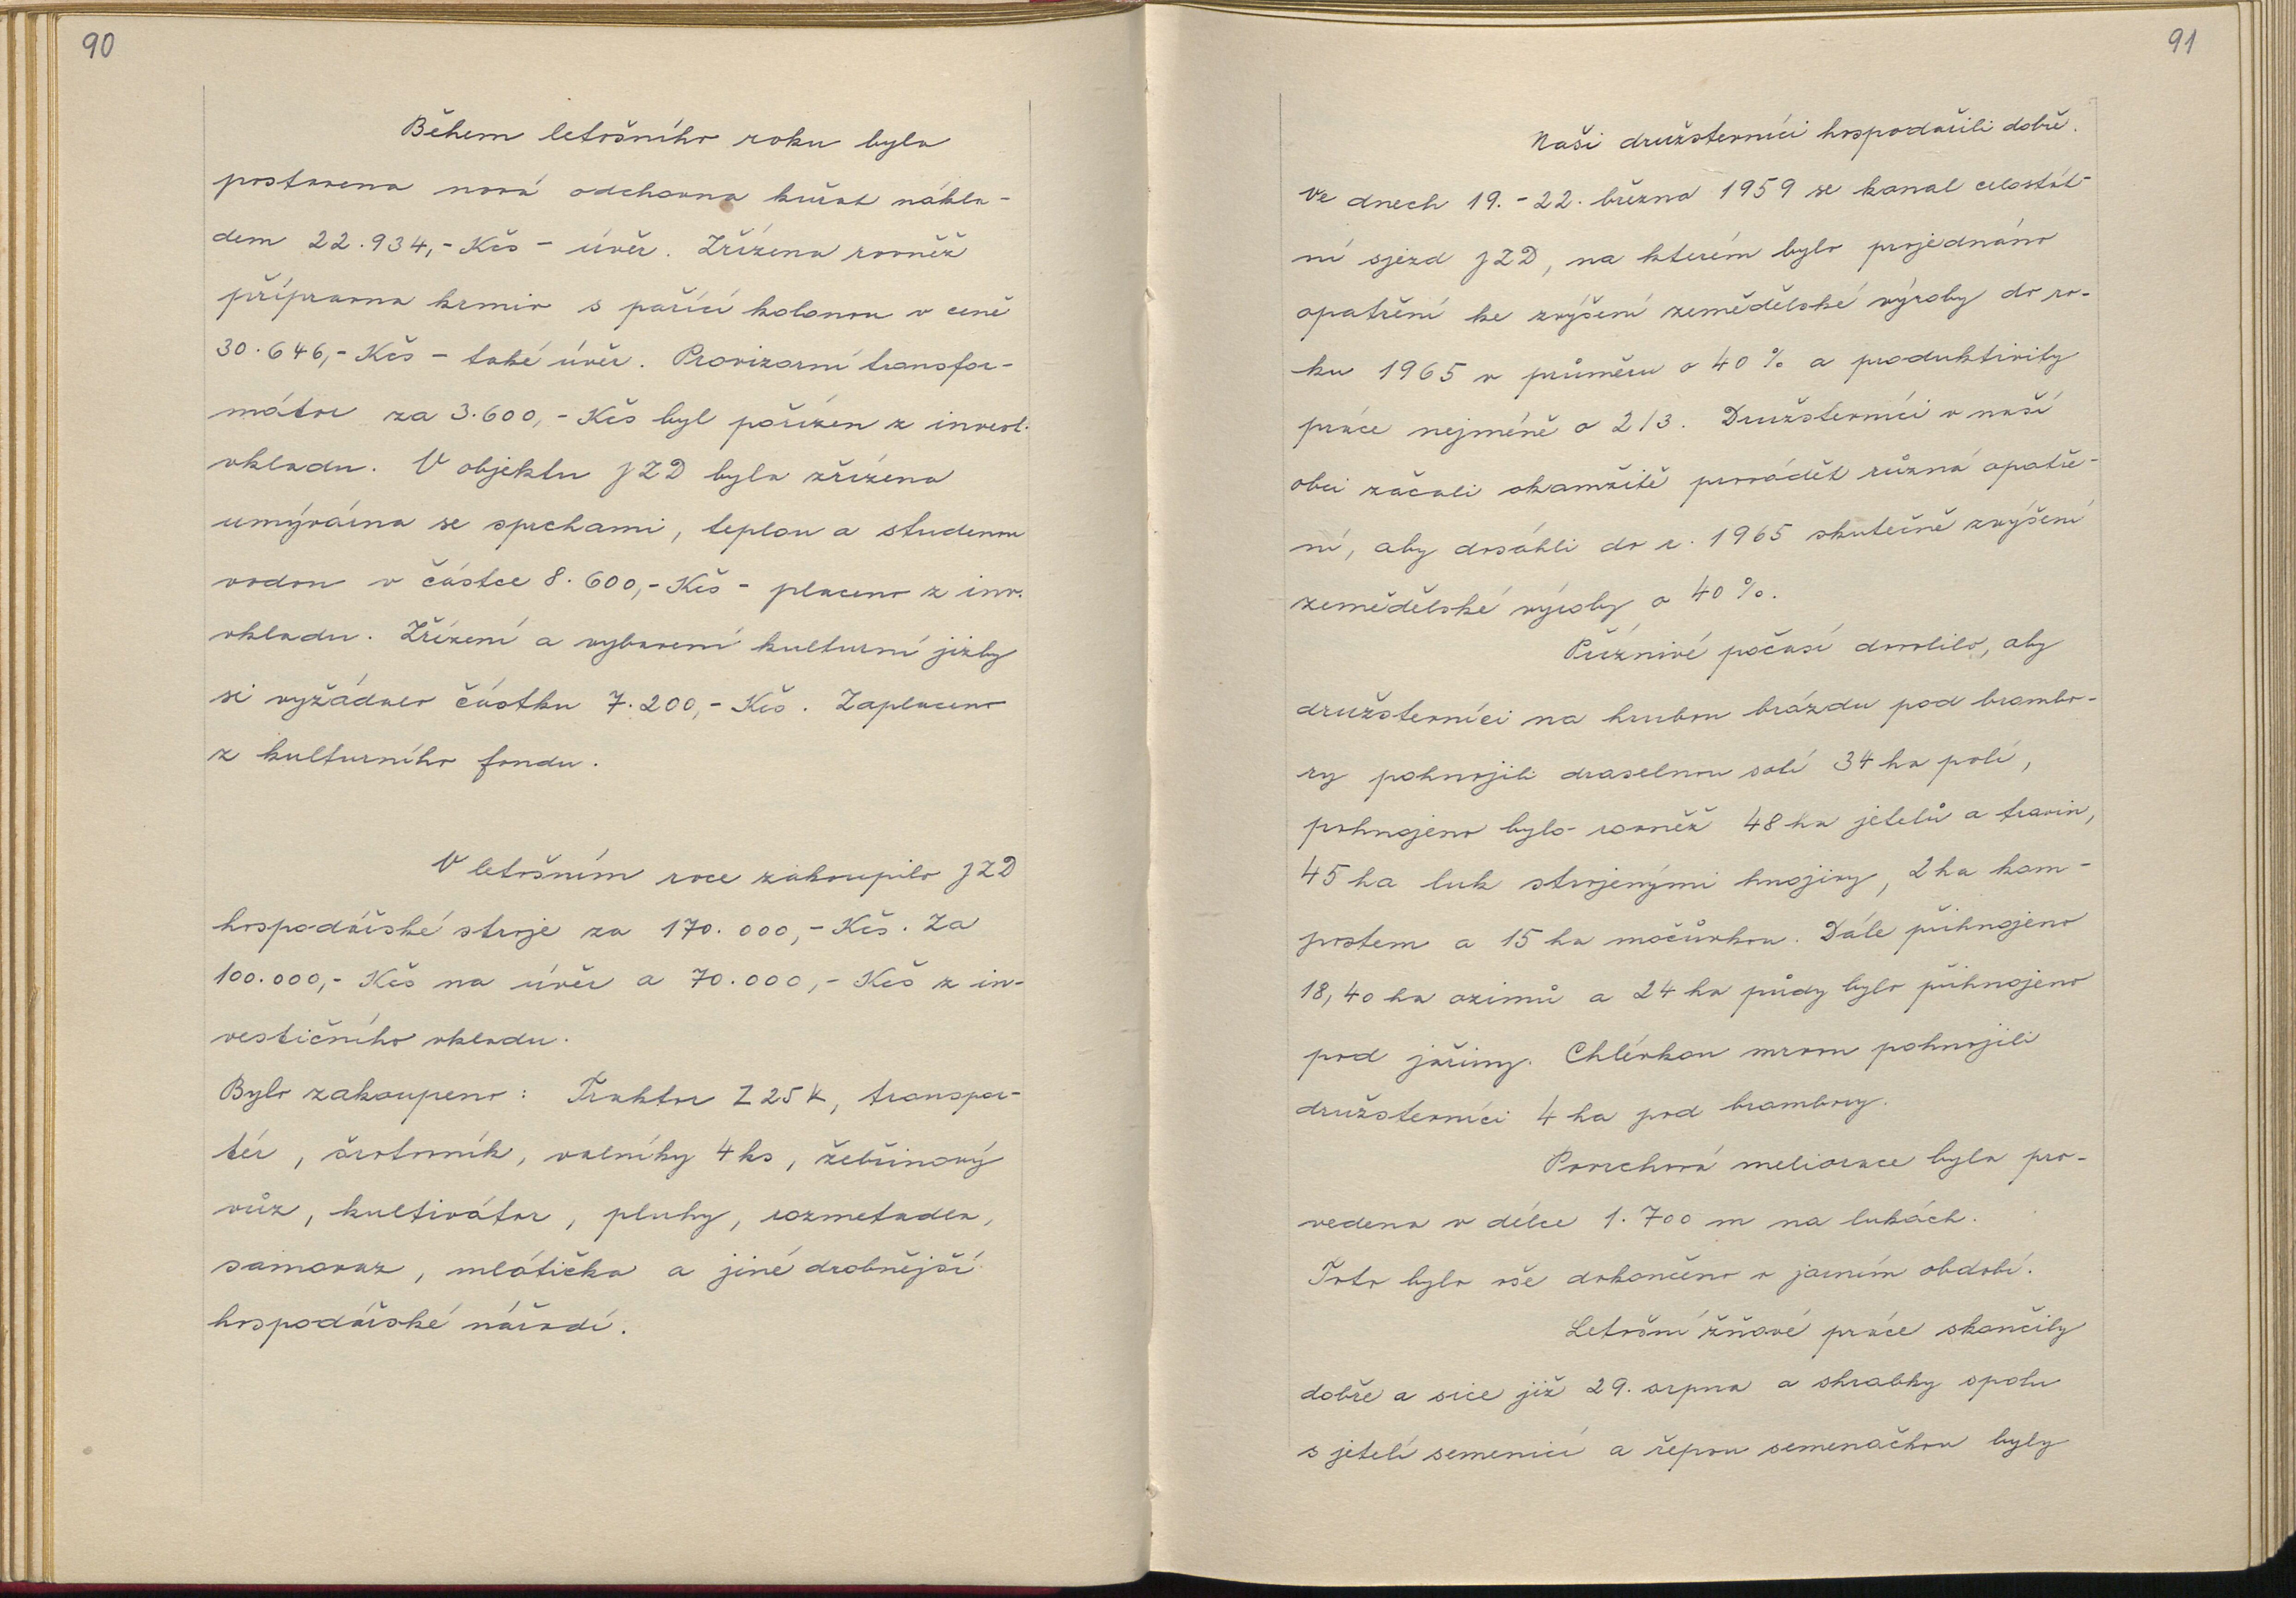 90
Během letošního roku byla
postavena nová odchovna kuřat nákla-
dem 22.934,- Kčs - úvěr. Zřízena rovněž
přípravna krmiv s pařící kolonou v ceně
30.646,- Kčs - také úvěr. Provizorní transfor-
mátor za 3.600,- Kčs byl pořízen z invest.
vkladu. V objektu JZD byla zřízena
umývárna se sprchami, teplou a studenou
vodou v částce 8.600,- Kčs - placeno z inv.
vkladu. Zřízení a vybavení kulturní jizby
si vyžádalo částku 7.200,- Kčs. Zaplaceno
z kulturního fondu.
V letošním roce zakoupilo JZD
hospodářské stroje za 170.000,- Kčs. Za
100.000,- Kčs na úvěr a 70.000,- Kčs z in-
vestičního vkladu.
Bylo zakoupeno: Traktor Z 25 K, transpor-
tér, šrotovník, valníky 4 ks, žebřinový
vůz, kultivátor, pluhy, rozmetadla,
samovaz, mlátička a jiné drobnější
hospodářské nářadí.
91
Naši družstevníci hospodařili dobře.
Ve dnech 19. - 22. března 1959 se konal celostát-
ní sjezd JZD, na kterém bylo projednáno
opatření ke zvýšení zemědělské výroby do ro-
ku 1965 v průměru o 40 % a produktivity
práce nejméně o 2/3. Družstevníci v naší
obci začali okamžitě provádět různá opatře-
ní, aby dosáhli do r. 1965 skutečně zvýšení
zemědělské výroby o 40 %.
Příznivé počasí dovolilo, aby
družstevníci na hrubou brázdu pod brambo-
ry pohnojili draselnou solí 34 ha polí,
pohnojeno bylo rovněž 48 ha jetelů a travin,
45 ha luk strojenými hnojivy, 2 ha kom-
postem a 15 ha močůvkou. Dále přihnojeno
18,40 ha ozimů a 24 ha půdy bylo přihnojeno
pod jařiny. Chlévkou mrvou pohnojili
družstevníci 4 ha pod brambory.
Povrchová meliorace byla pro-
vedena v délce 1.700 m na lukách.
Toto bylo vše dokončeno v jarním období.
Letošní žňové práce skončily
dobře a sice již 29. srpna a shrabky spolu
s jetelí semenicí a řepou semenačkou byly